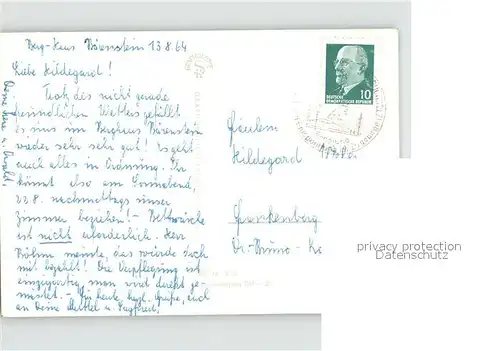 Berg-Haus Bärenstein 13.8.64
Liebe Hildegard!
Trotz des nicht gerade
freundlichen Wetters gefällt
es uns im Berghaus Bärenstein
wieder sehr sehr gut! Es geht
auch alles in Ordnung. Ihr
könnt also am Sonnabend,
22.8. nachmittags unser
Zimmer beziehen! – Bettwäsche
ist nicht erforderlich. Herr
Böhm meinte, das würde doch
mit bezahlt! Die Verpflegung ist
einzigartig, man wird direkt ge-
mästet. – Für heute herzl. Grüße, auch
an Deine Mutter u. Siegfried,
DEUTSCHE
DEMOKRATISCHE REPUBLIK
10
Fräulein
Hildegard
Frankenberg
Dr.-Bruno-
privacy protection
Datenschutz